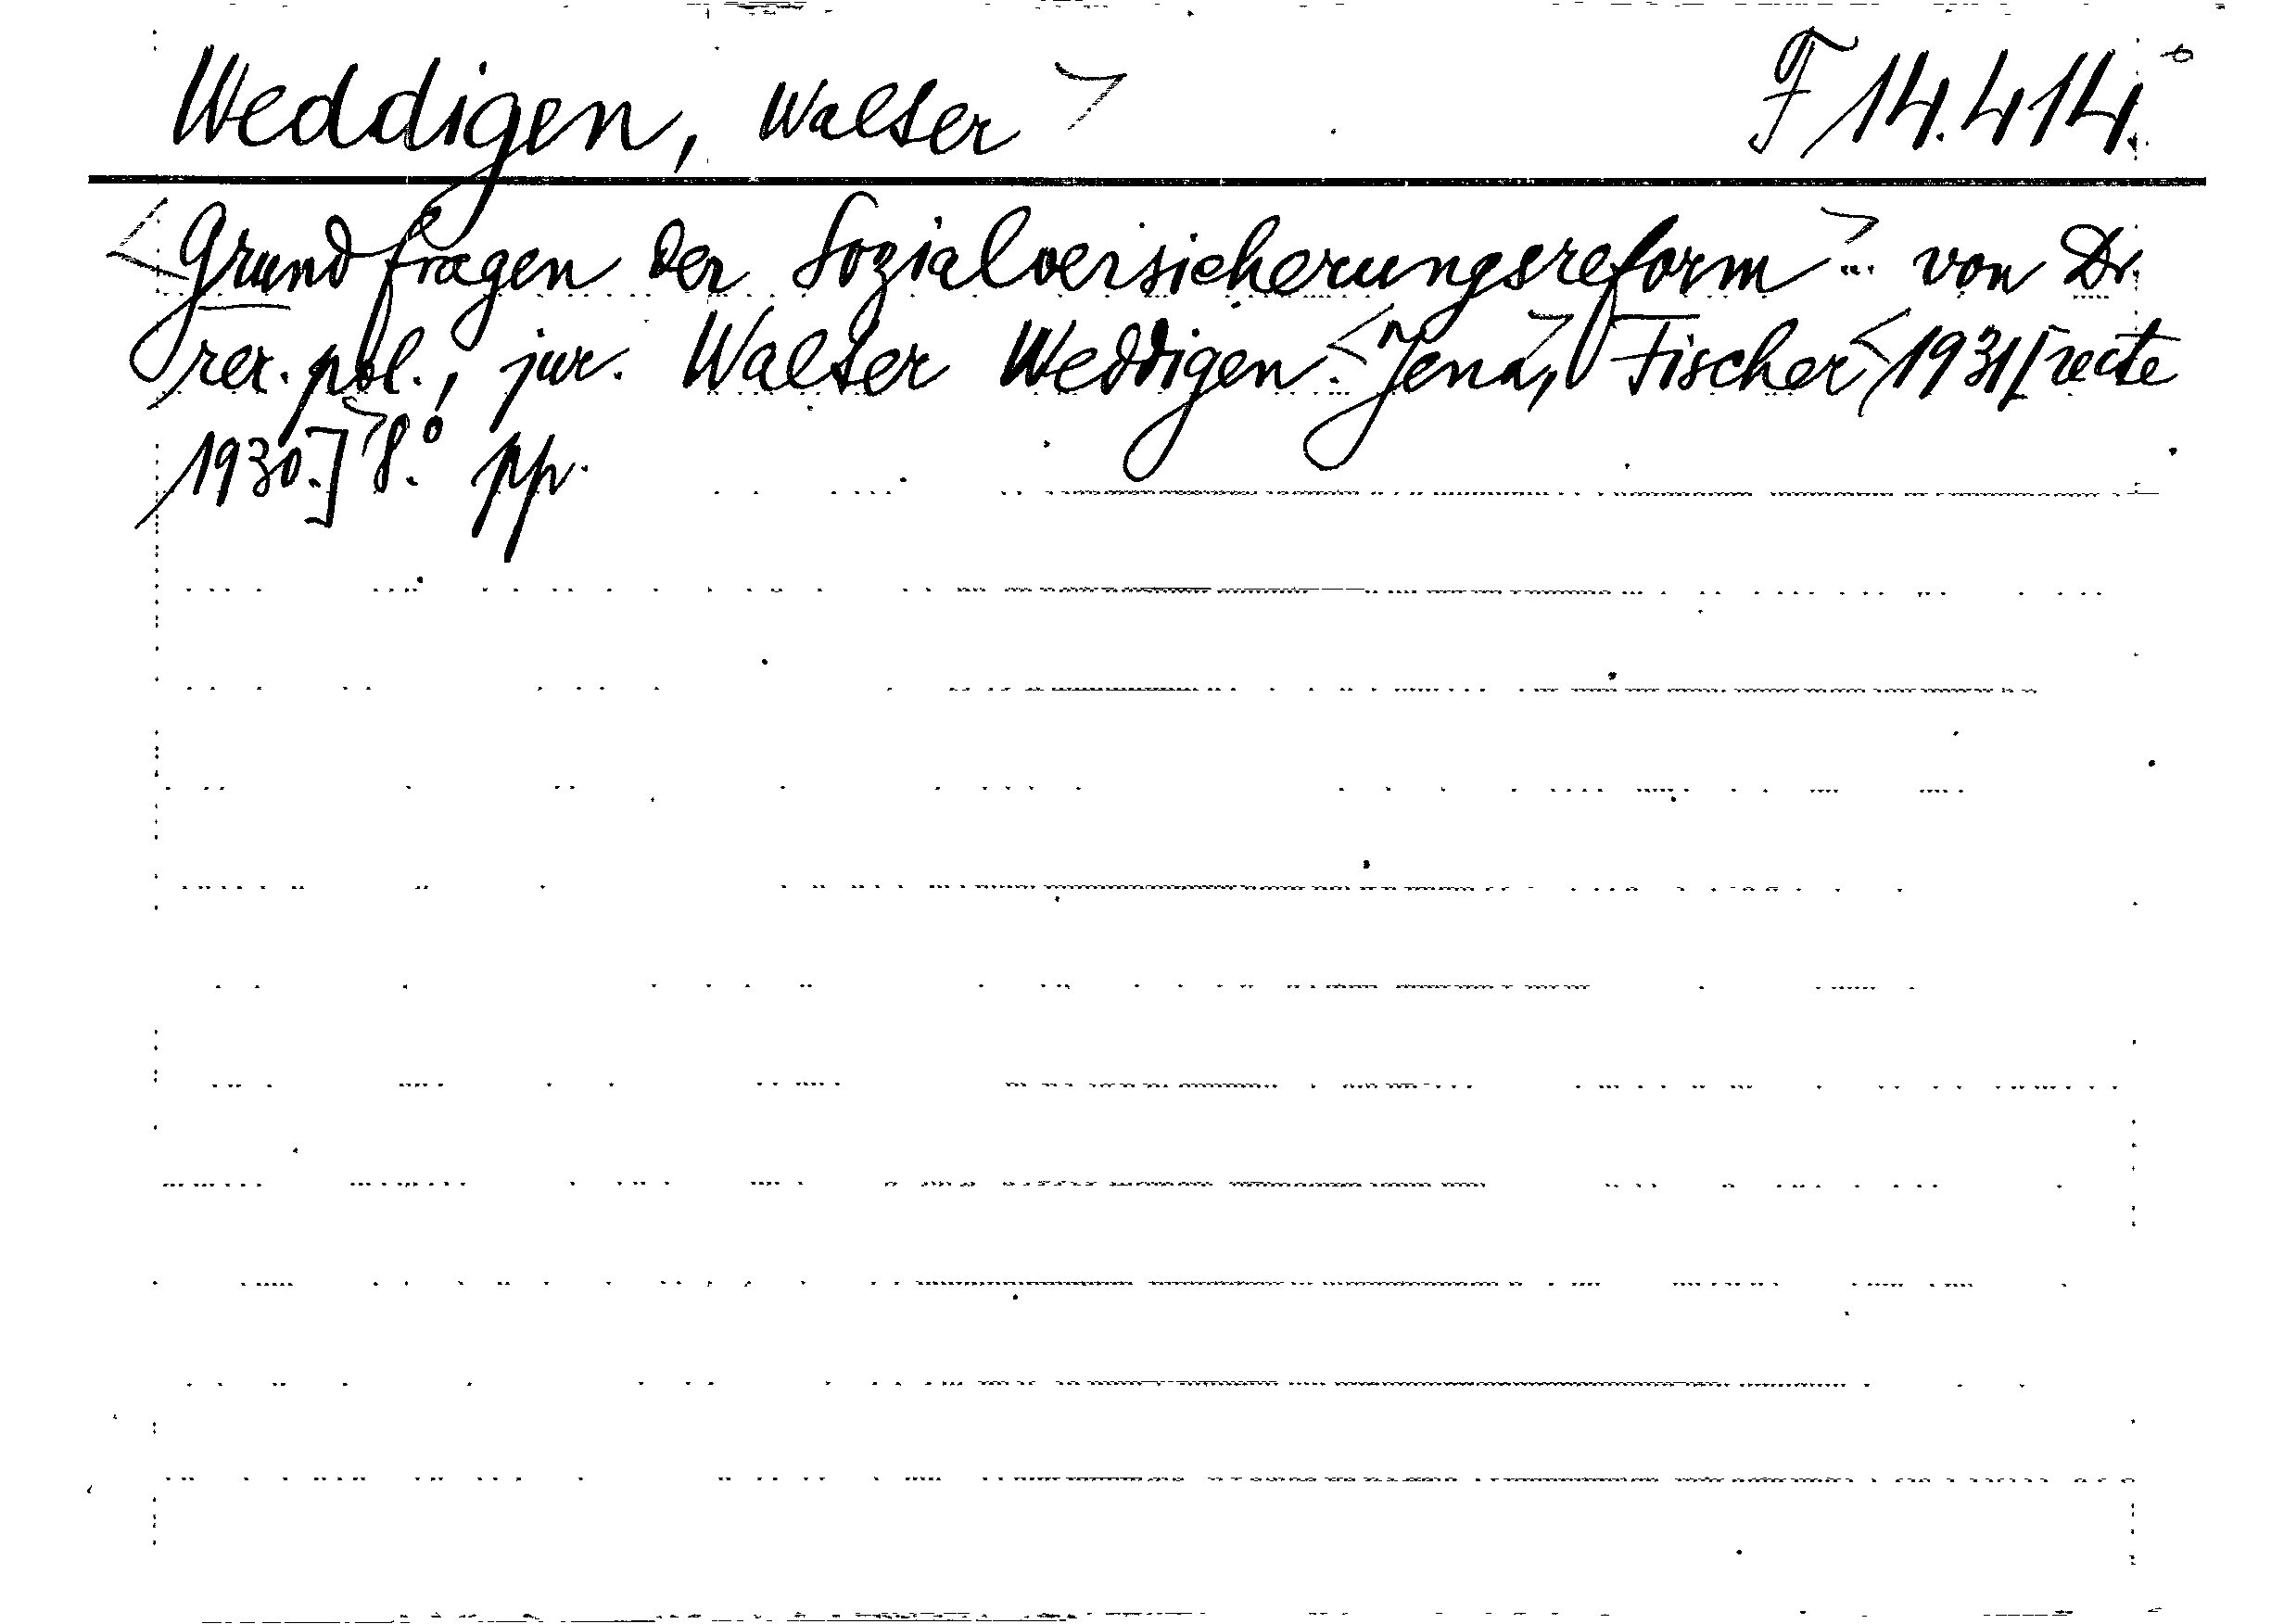 Weddigen, Walter > F 14.414.
<Grundfragen der Sozialversicherungsreform> ... von Dr.
rer. pol., jur. Walter Weddigen. <Jena>, Fischer <1931 [recte
1930.]> 8.° pp.